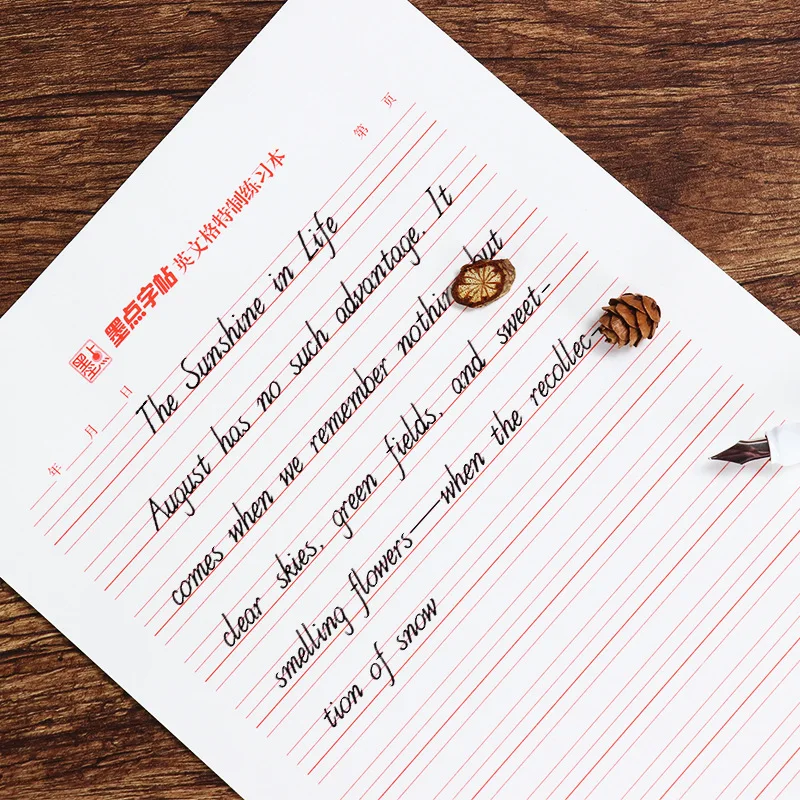 第 页
墨点 墨点字帖 英文格特制练习本
年 月 日
The Sunshine in Life
August has no such advantage. It
comes when we remember nothing but
clear skies, green fields, and sweet-
smelling flowers—when the recollec-
tion of snow